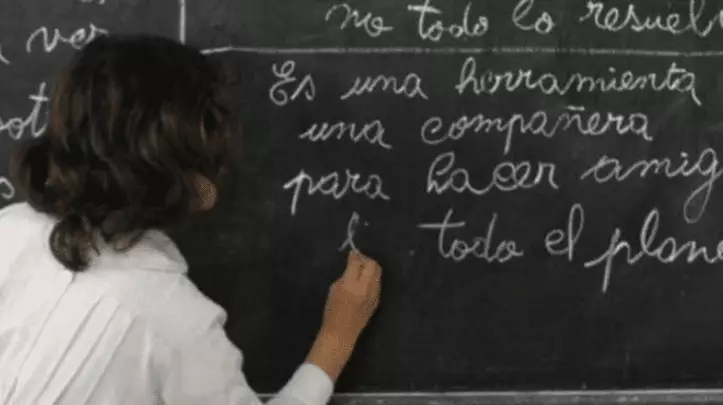 no todo lo resuel
ver
Es una herramienta
una compañera
para hacer amig
todo el plane